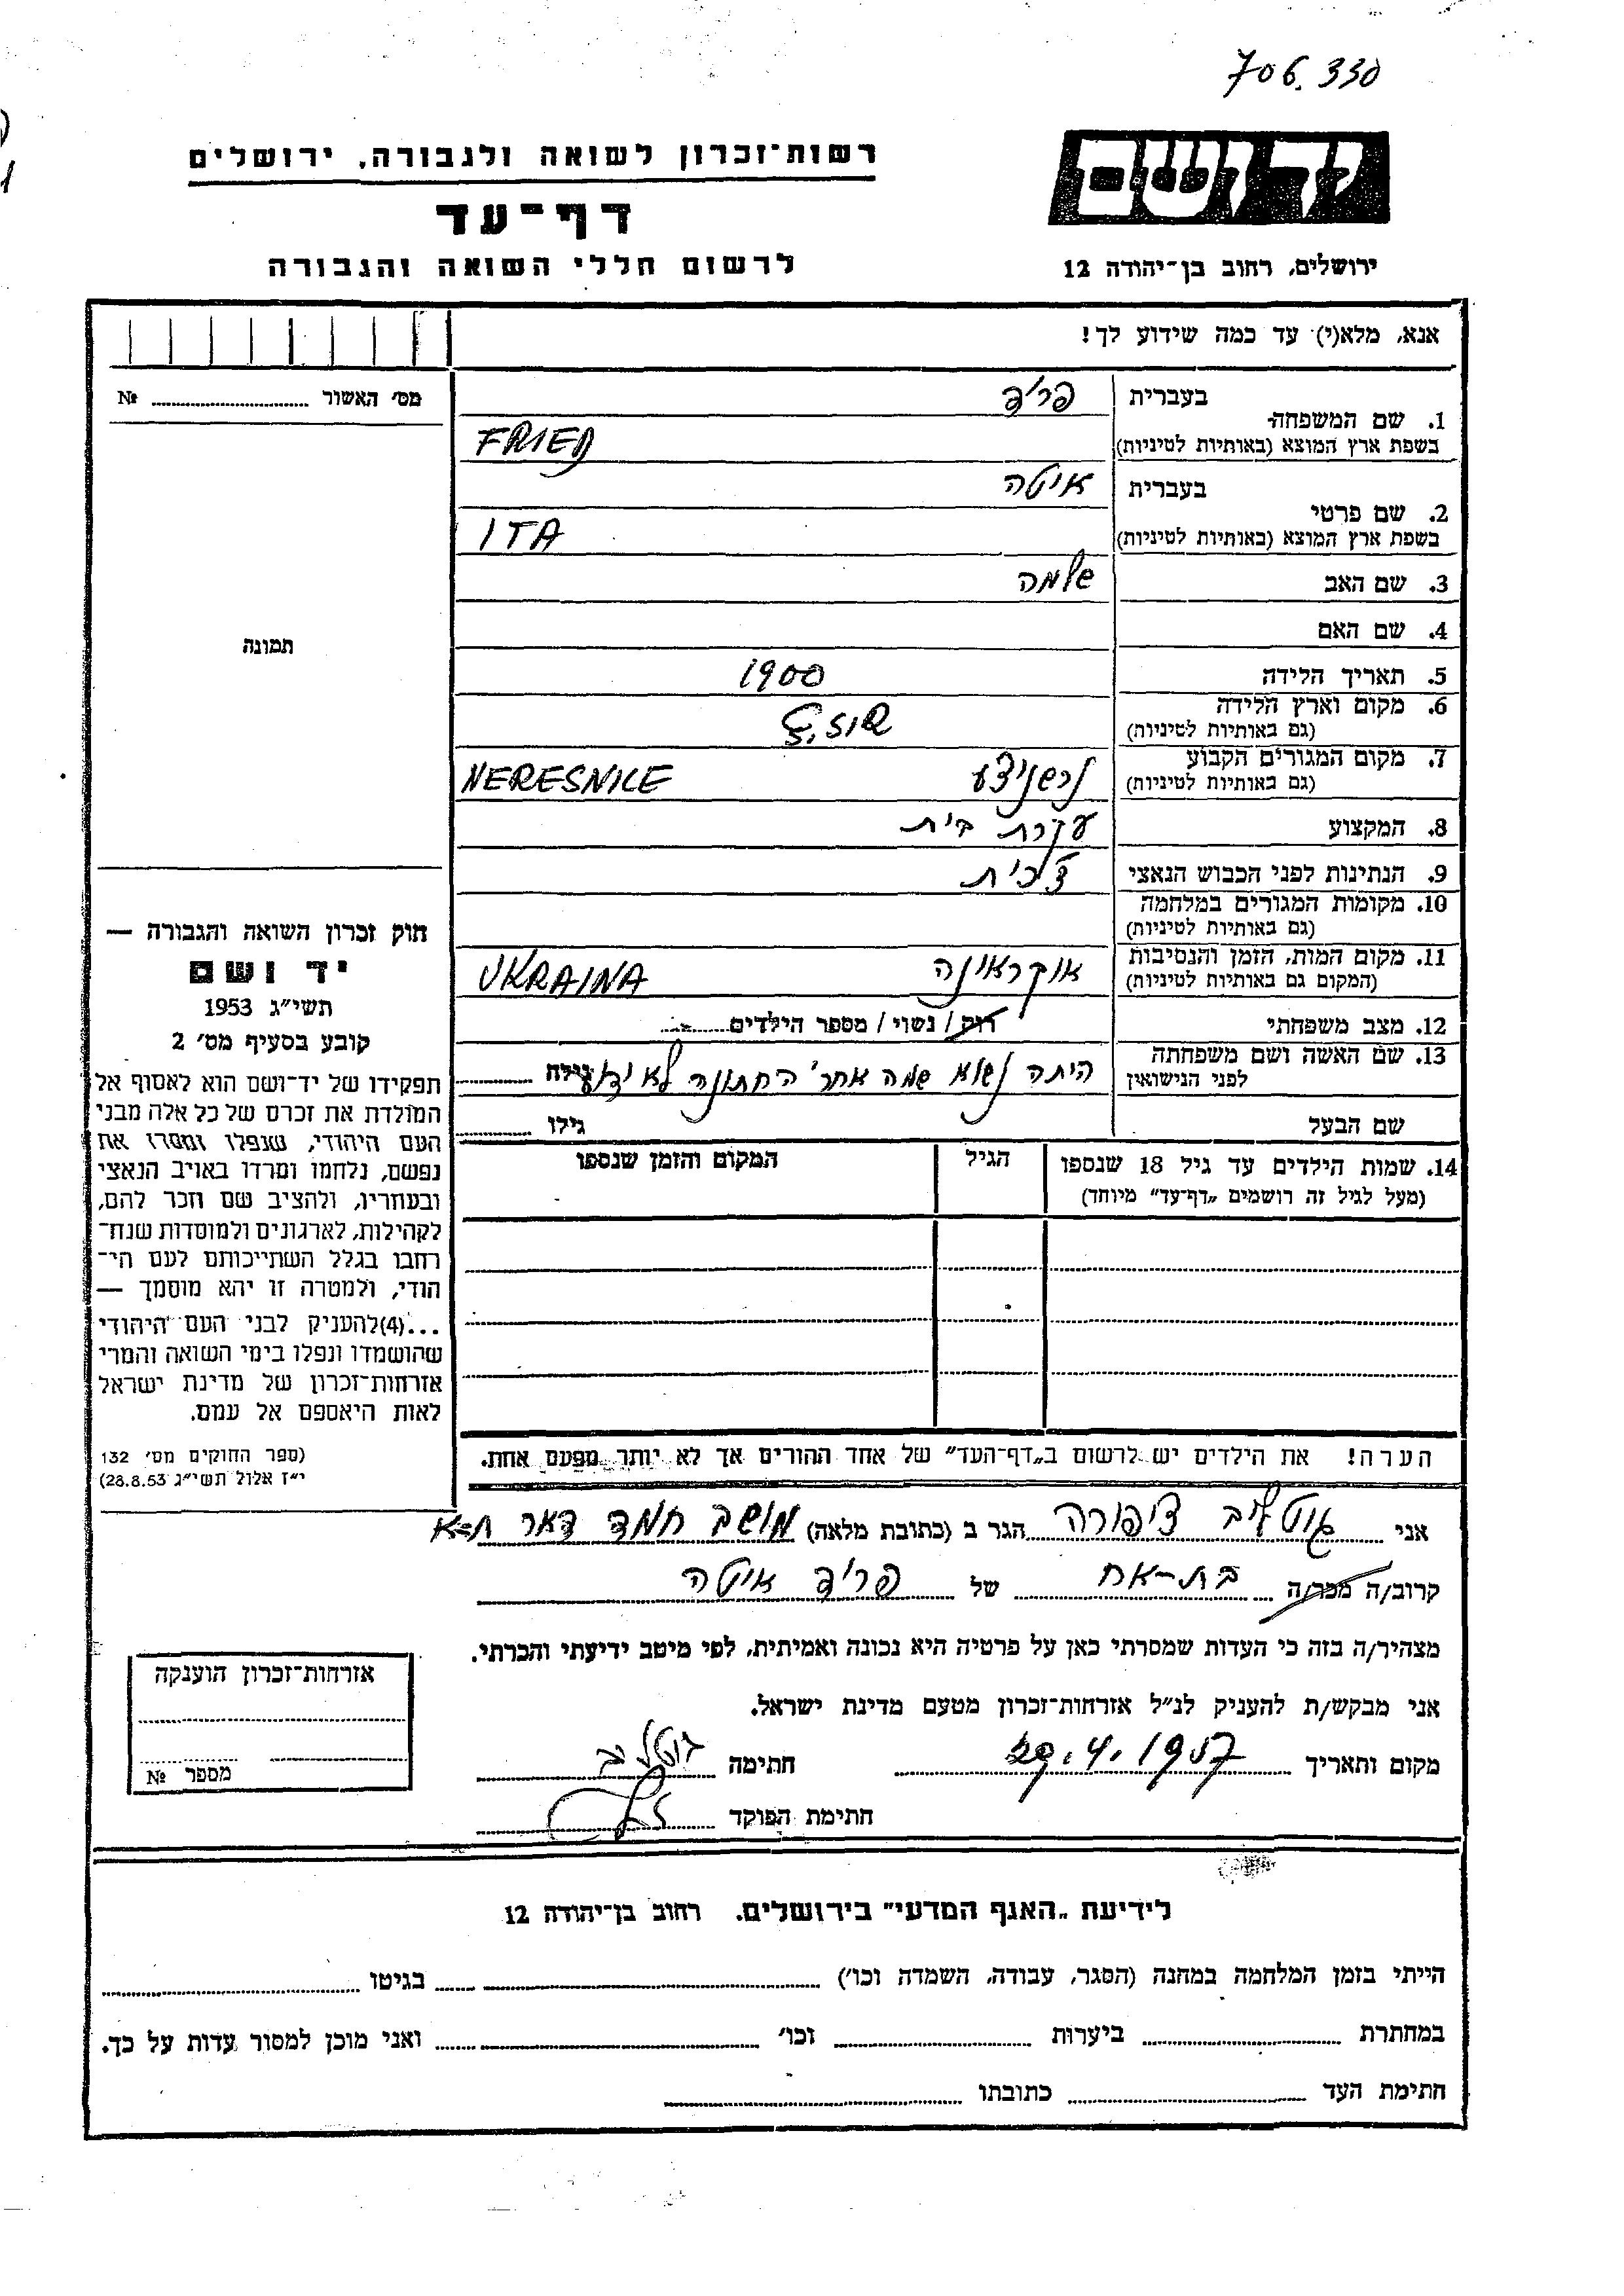 706.330
יד ושם
רשות־זכרון לשואה ולגבורה, ירושלים
דף־עד
לרשום חללי השואה והגבורה
ירושלים, רחוב בן־יהודה 12
אנא, מלא(י) עד כמה שידוע לך!
מס' האשור № 
תמונה
חוק זכרון השואה והגבורה —
יד ושם
תשי״ג 1953
קובע בסעיף מס' 2
תפקידו של יד־ושם הוא לאסוף אל
המולדת את זכרם של כל אלה מבני
העם היהודי, שנפלו ומסרו את
נפשם, נלחמו ומרדו באויב הנאצי
ובעוזריו, ולהציב שם וזכר להם,
לקהילות, לארגונים ולמוסדות שנח־
רבו בגלל השתייכותם לעם הי־
הודי, ולמטרה זו יהא מוסמך —
...(4) להעניק לבני העם היהודי
שהושמדו ונפלו בימי השואה והמרי
אזרחות־זכרון של מדינת ישראל
לאות היאספם אל עמם.
(ספר החוקים מס' 132
י״ז אלול תשי״ג 28.8.53)
1. שם המשפחה בעברית פריד
בשפת ארץ המוצא (באותיות לטיניות) FRIED
2. שם פרטי בעברית איטה
בשפת ארץ המוצא (באותיות לטיניות) ITA
3. שם האב שלמה
4. שם האם
5. תאריך הלידה 1900
6. מקום וארץ הלידה
(גם באותיות לטיניות)
7. מקום המגורים הקבוע נרשניצע NERESNICE
(גם באותיות לטיניות)
8. המקצוע עקרת בית
9. הנתינות לפני הכבוש הנאצי צ'כית
10. מקומות המגורים במלחמה
(גם באותיות לטיניות)
11. מקום המות, הזמן והנסיבות אוקראינה UKRAINA
(המקום גם באותיות לטיניות)
12. מצב משפחתי רוק / נשוי / מספר הילדים
13. שם האשה ושם משפחתה היתה נשוא שמה אחרי החתונה לא ידוע גילה
לפני הנישואין
שם הבעל גילו
14. שמות הילדים עד גיל 18 שנספו הגיל המקום והזמן שנספו
(מעל לגיל זה רושמים „דף־עד״ מיוחד)
הערה! את הילדים יש לרשום ב„דף־העד״ של אחד ההורים אך לא יותר מפעם אחת.
אני גוטליב ציפורה הגר ב (כתובת מלאה) מושב חמד דאר ת-א
קרוב/ה מכר/ה בת-אח של פריד איטה
מצהיר/ה בזה כי העדות שמסרתי כאן על פרטיה היא נכונה ואמיתית, לפי מיטב ידיעתי והכרתי.
אני מבקש/ת להעניק לנ״ל אזרחות־זכרון מטעם מדינת ישראל.
מקום ותאריך .4.1957 חתימה גוטליב
חתימת הפוקד
אזרחות־זכרון הוענקה
מספר №
לידיעת „האגף המדעי״ בירושלים, רחוב בן־יהודה 12
הייתי בזמן המלחמה במחנה (הסגר, עבודה, השמדה וכו') בגיטו
במחתרת ביערות וכו' ואני מוכן למסור עדות על כך.
חתימת העד כתובתו